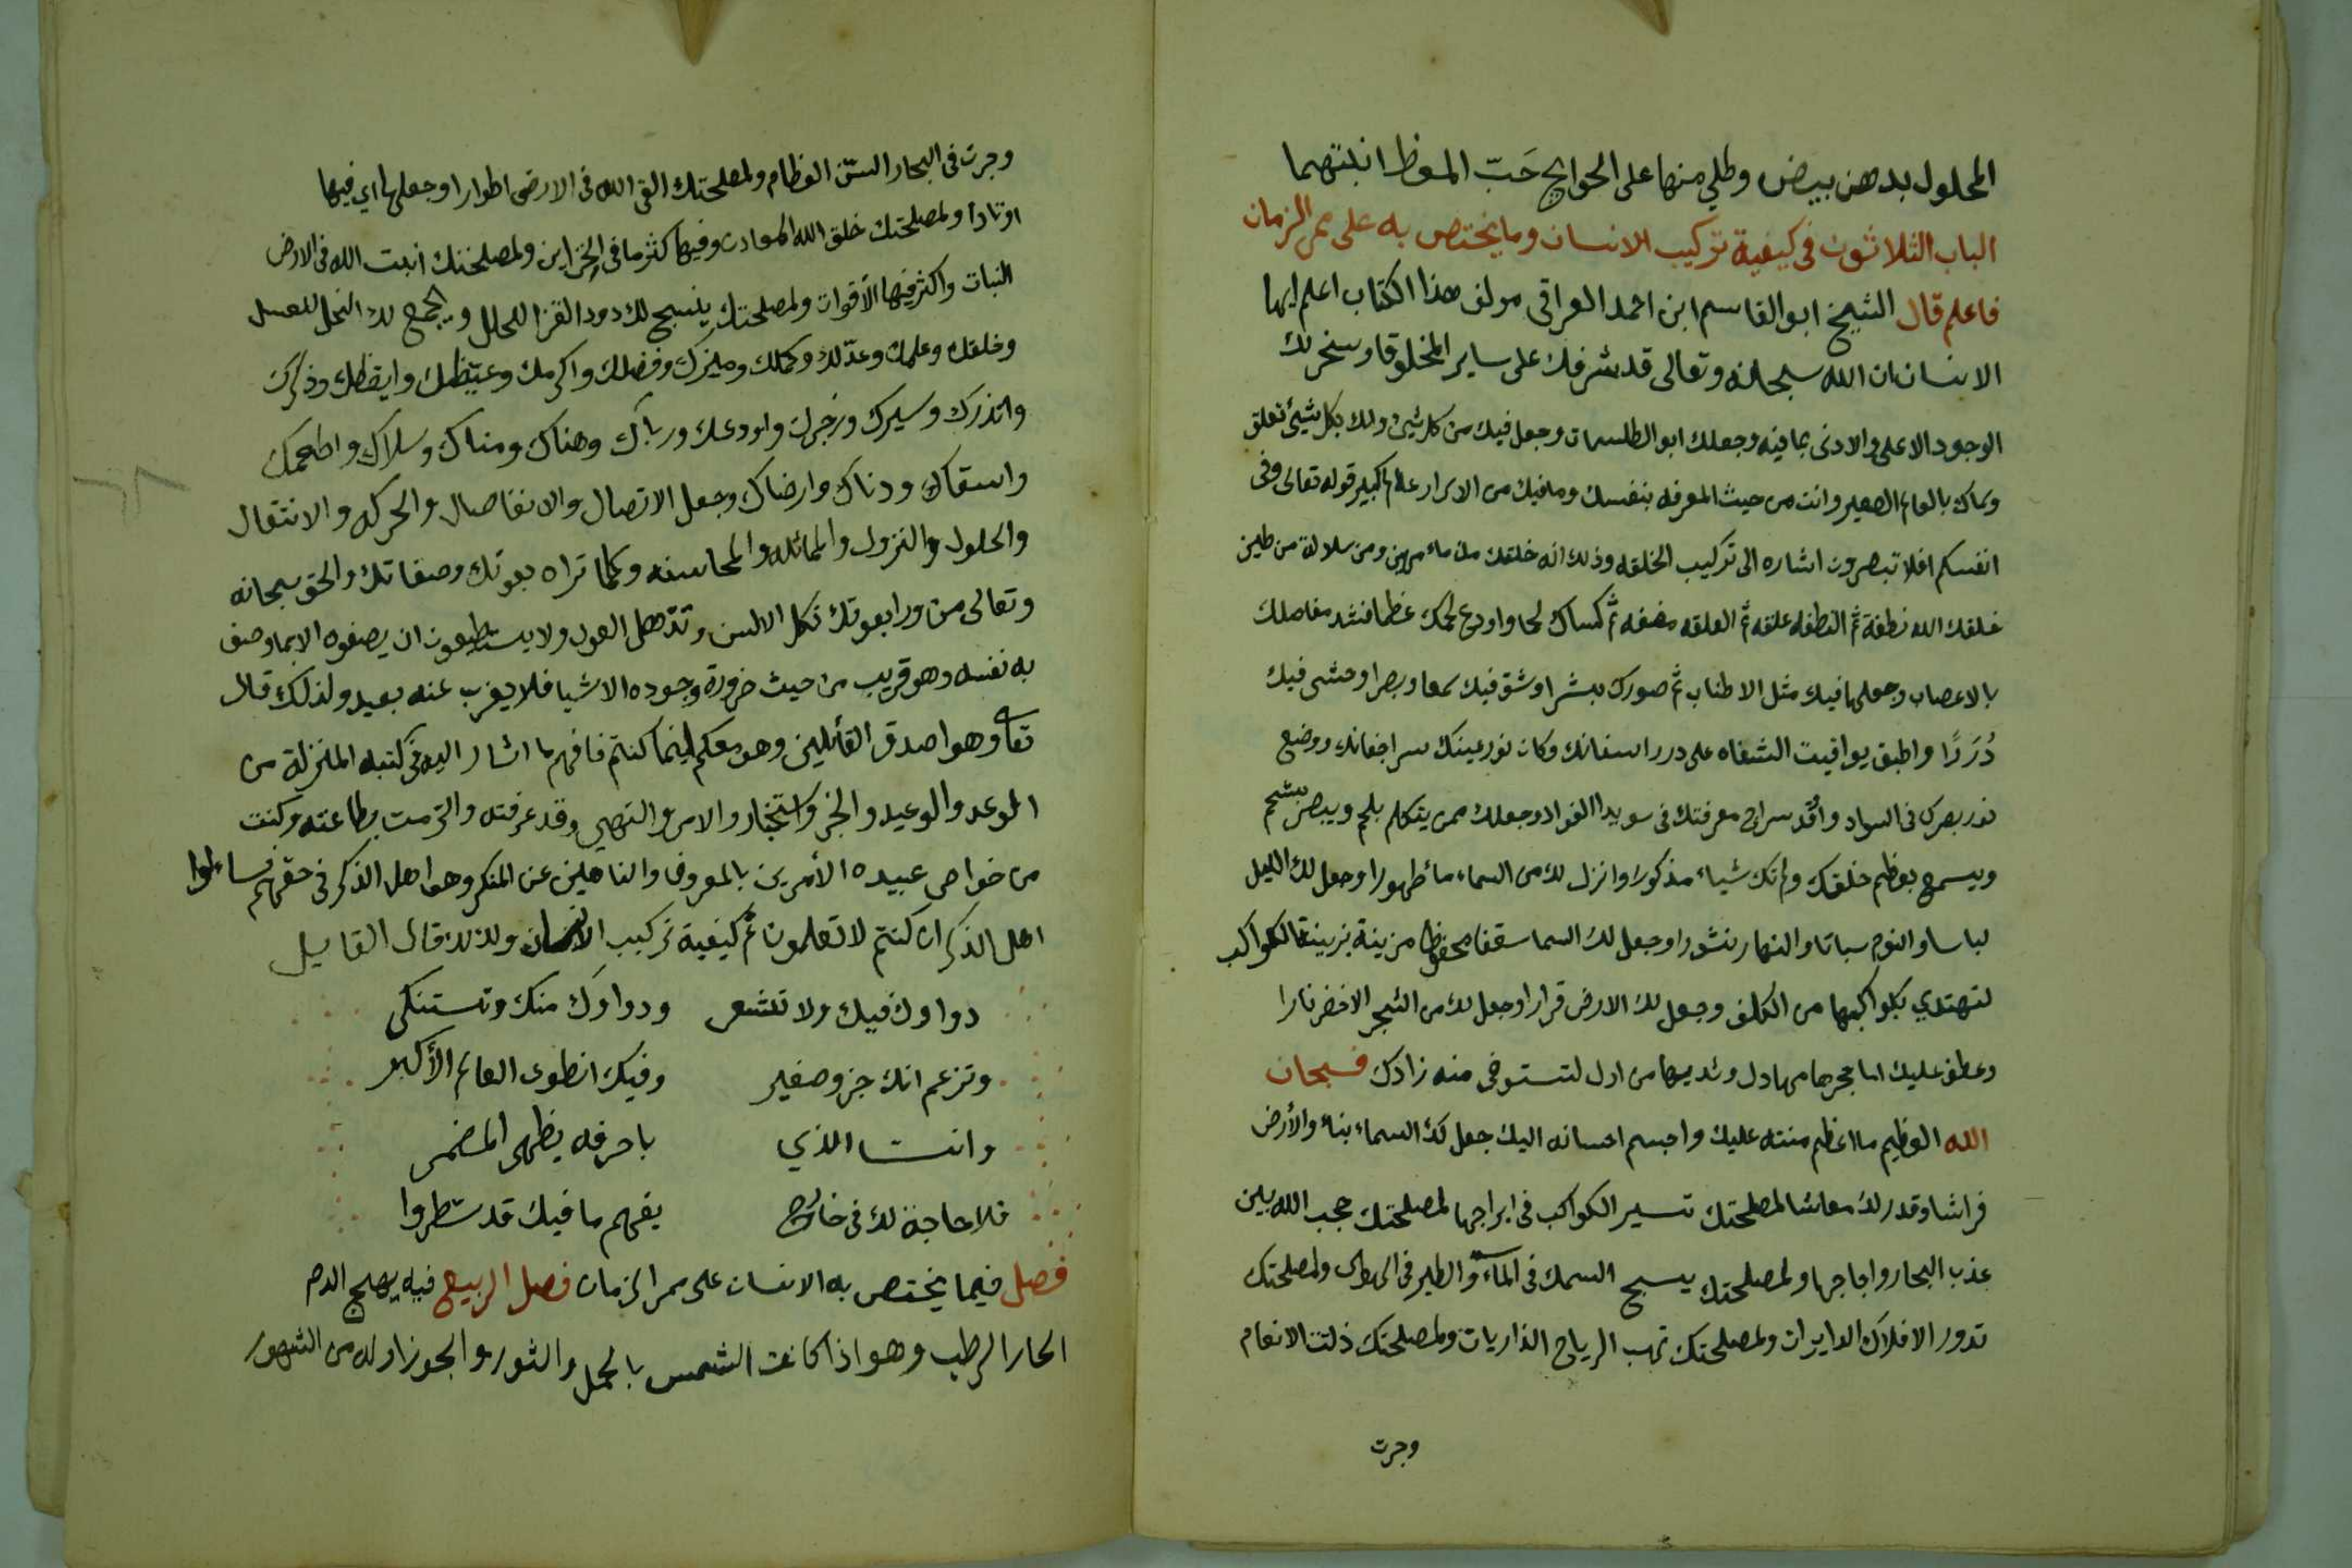 المحلول بدهن بيض وطلي منها على الحوايج حَبّ الموظ انبتهما
الباب الثلاثون في كيفية تركيب الانسان وما يختص به على ممر الزمان
فاعلم قال الشيخ ابو القاسم ابن احمد العراقي مولف هذا الكتاب اعلم ايها
الانسان ان الله سبحانه وتعالى قد شرفك على ساير المخلوقا وسخر لك
الوجود الاعلى والادنى بما فيه وجعلك ابو الطلسمات وجعل فيك من كل شيئ ولك بكل شيئ تعلق
وسماك بالعالم الصغير وانت من حيث المعرفه بنفسك وما فيك من الاسرار عالم كبير قوله تعالى وفى
انفسكم افلا تبصرون اشاره الى تركيب الخلقه وذلك انه خلقك من ماء مهين ومن سلالة من طين
خلقك الله نطفة ثم النطفه علقه ثم العلقه مضغه ثم كساك لحما واودع لحمك عظما فشد مفاصلك
بالاعصاب وجعلها فيك مثل الاطناب ثم صورك بشرا وشق فيك سمعا وبصرا ومشى فيك
دُرَرًا واطبق يواقيت الشفاه على درر اسنانك وكان نور عينك سرا جفانك ووضع
نور بصرك في السواد واقد سراج معرفتك في سويدا الفواد وجعلك ممن يتكلم بلحم ويبصر بشحم
ويسمع بعظم خلقك ولم تك شياء مذكورا وانزل لك من السماء مأ طهورا وجعل لك الليل
لباسا والنوم سباتا والنهار نشورا وجعل لك السما سقفا محفوظا مزينة بزينة الكواكب
لتهتدي بكواكبها من الكلف وجعل لك الارض قرارا وجعل لك من الشجر الاخضر نارا
وعطف عليك اما حجرها مهادل وثديها من ادل لتستوفى منه زادك فسبحان
الله العظيم ما اعظم منته عليك واجسم احسانه اليك جعل لك السماء بناء والأرض
فراشا وقدر لك معاشا لمصلحتك تسير الكواكب في ابراجها لمصلحتك حجب الله بين
عذب البحار واجاجها ولمصلحتك يسبح السمك في الماء والطير في الهوى ولمصلحتك
تدور الافلاك الدايرات ولمصلحتك تهب الرياح الذاريات ولمصلحتك ذللت الانعام
وجرت
وجرت في البحار السفن العظام ولمصلحتك القى الله في الارض اطوارا وجعلها اي فيها
اوتادا ولمصلحتك خلق الله المعادن وفيها كثر ما في الخزاين ولمصلحتك انبت الله في الارض
النبات واكثر فيها الأقوات ولمصلحتك ينسج لك دود القز الحلل ويجمع لك النحل العسل
وخلقك وعلمك وعدّلك وكملك وميزك وفضلك واكرمك وعيّظك وايقظك وذكرك
وانذرك وسيرك وزجرك واودعك ورباك وهناك ومناك وسلاك واطعمك
واسقاك ودناك وارضاك وجعل الاتصال والانفاصال والحركه والانتقال
والحلول والنزول والماثله والمحاسنه وكلما تراه بعوتك وصفاتك والحق سبحانه
وتعالى من ورا بعوتك تكل الالسن وتذهل العول ولا يستطيعون ان يصفوه الا بما وصف
به نفسه وهو قريب من حيث ضرورة وجوده الاشيا فلا يغرب عنه بعيد ولذلك قال
تعا وهو اصدق القائلين وهو معكم اينما كنتم فافهم ما اشار اليه في كتبه المنزلة من
الموعد والوعيد والخبر واستخبار والامر والنهي وقد عرفته والتزمت بطاعته وكنت
من خواص عبيده الأمرين بالمعروف والناهين عن المنكر وهو اهل الذكر في حقهم فساءلوا
اهل الذكر ان كنتم لا تعلمون ثم كيفية تركيب الانسان ولذلك قال القايل
دواوك فيك ولا تشعر ودواوك منك وتستنكى
وتزعم انك جزو صغير وفيك انطوى العالم الأكبر
وانت الذي باحرفه يظهر المضمر
فلا حاجة لك في خارج يفهم ما فيك قد سطروا
فصل فيما يختص به الانسان على ممر الزمان فصل الربيع فيه يهيج الدم
الحار الرطب وهو اذا كانت الشمس بالحمل والثور والجوزا وله من الشهور